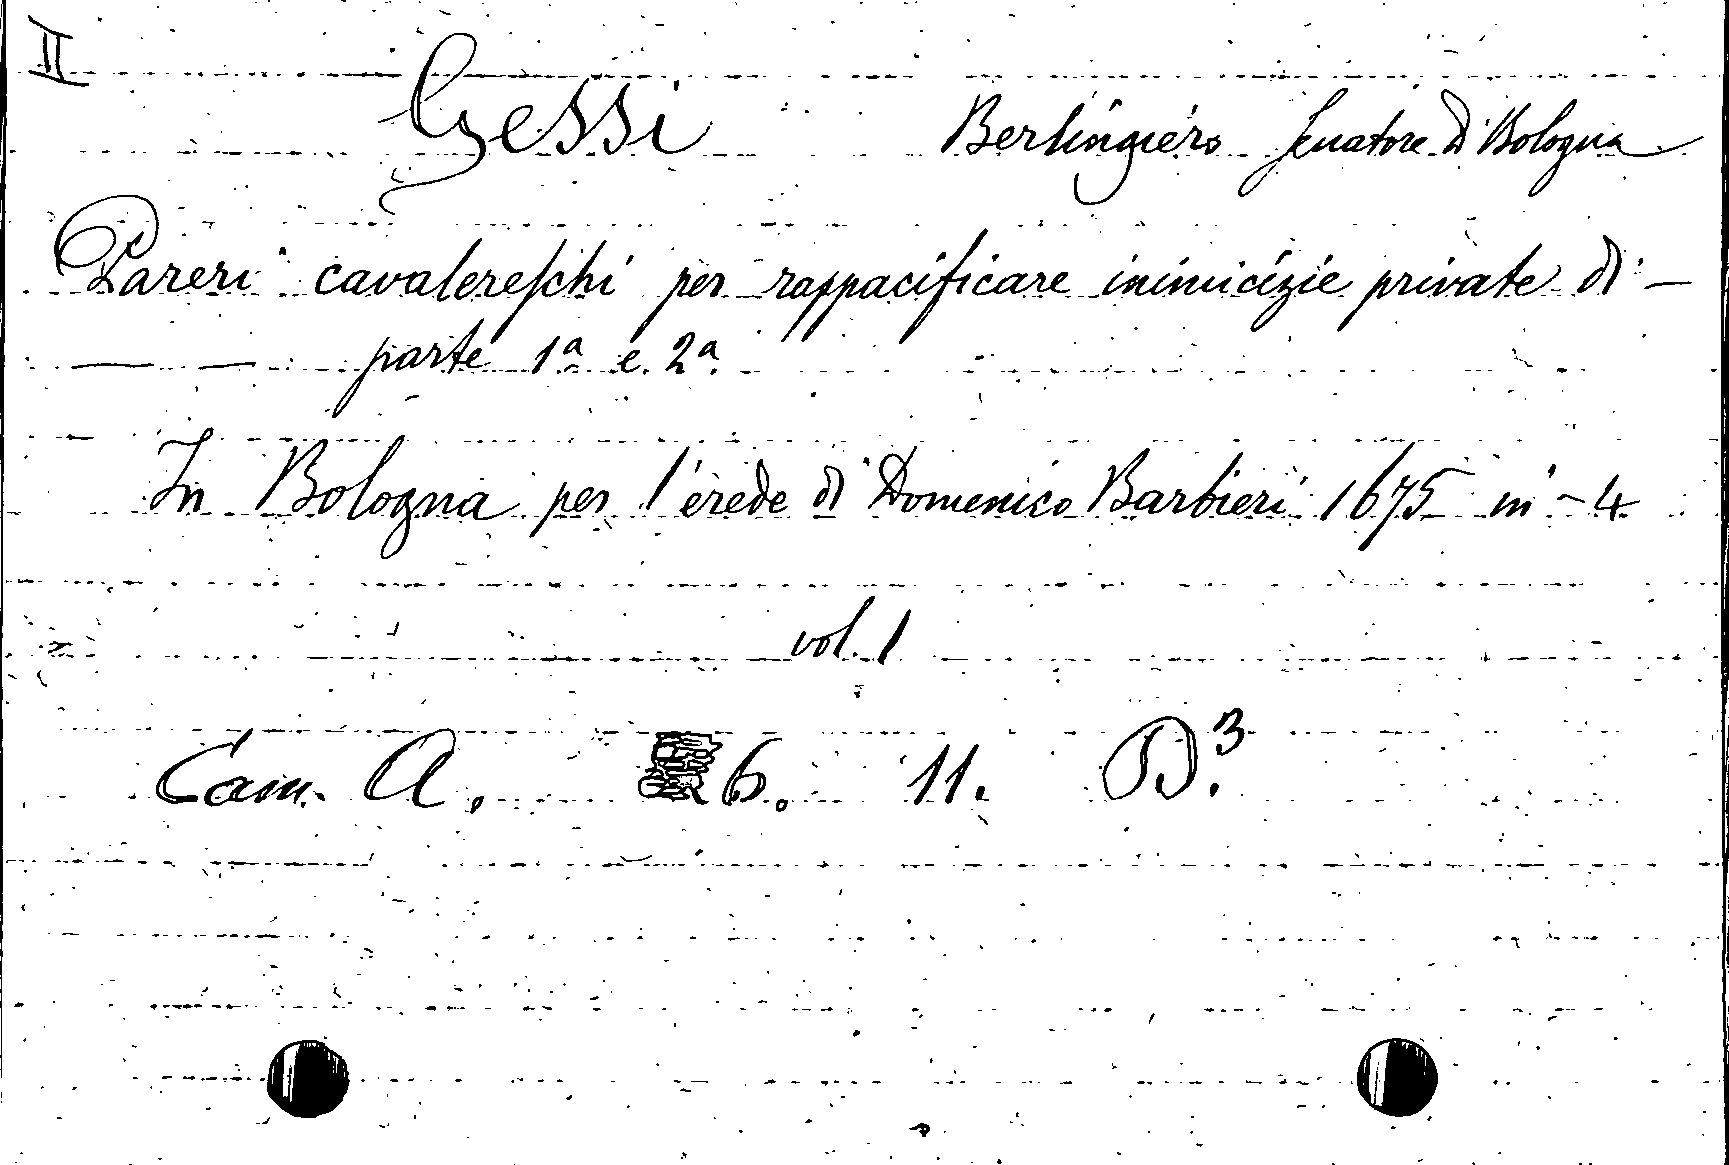 II
Gessi Berlingiero Senatore di Bologna
Pareri cavalereschi per rappacificare inimicizie private di —
— — parte 1a e 2a
In Bologna per l'erede di Domenico Barbieri 1675 in - 4
vol. 1
Cam. A. 6. 11. D.3